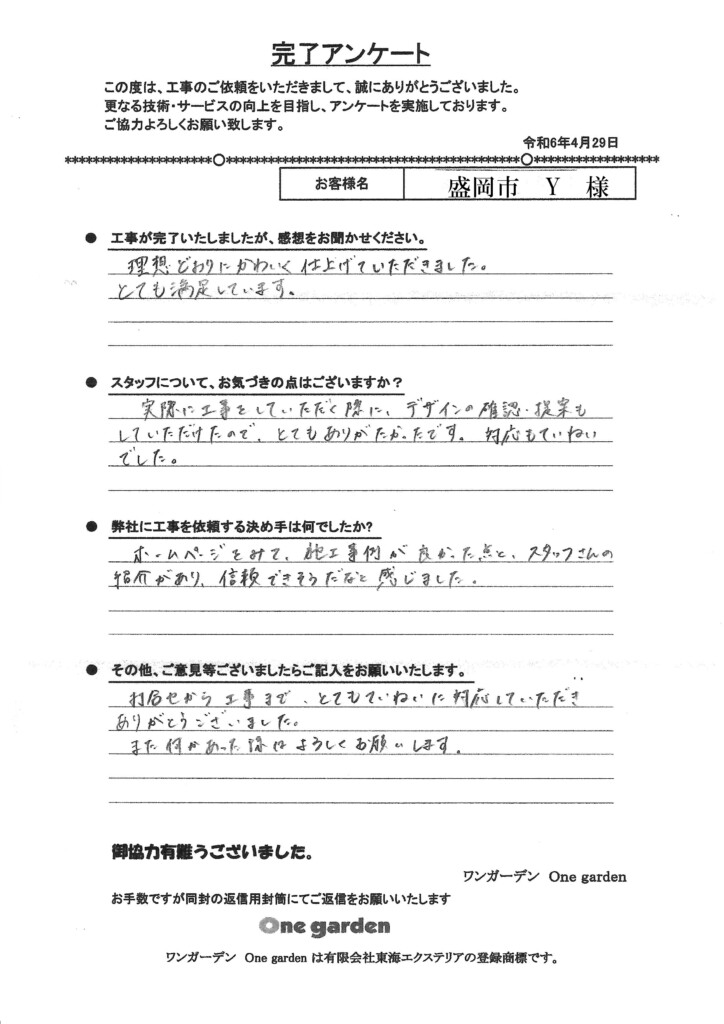 完了アンケート
この度は、工事のご依頼をいただきまして、誠にありがとうございました。
更なる技術・サービスの向上を目指し、アンケートを実施しております。
ご協力よろしくお願い致します。
令和6年4月29日
お客様名 盛岡市 Y 様
● 工事が完了いたしましたが、感想をお聞かせください。
理想どおりにかわいく仕上げていただきました。
とても満足しています。
● スタッフについて、お気づきの点はございますか？
実際に工事をしていただく際に、デザインの確認・提案も
していただけたので、とてもありがたかったです。対応もていねい
でした。
● 弊社に工事を依頼する決め手は何でしたか?
ホームページをみて、施工事例が良かった点と、スタッフさんの
紹介があり、信頼できそうだなと感じました。
● その他、ご意見等ございましたらご記入をお願いいたします。
打合せから工事まで、とてもていねいに対応していただき
ありがとうございました。
また何かあった際はよろしくお願いします。
御協力有難うございました。
ワンガーデン One garden
お手数ですが同封の返信用封筒にてご返信をお願いいたします
One garden
ワンガーデン One garden は有限会社東海エクステリアの登録商標です。